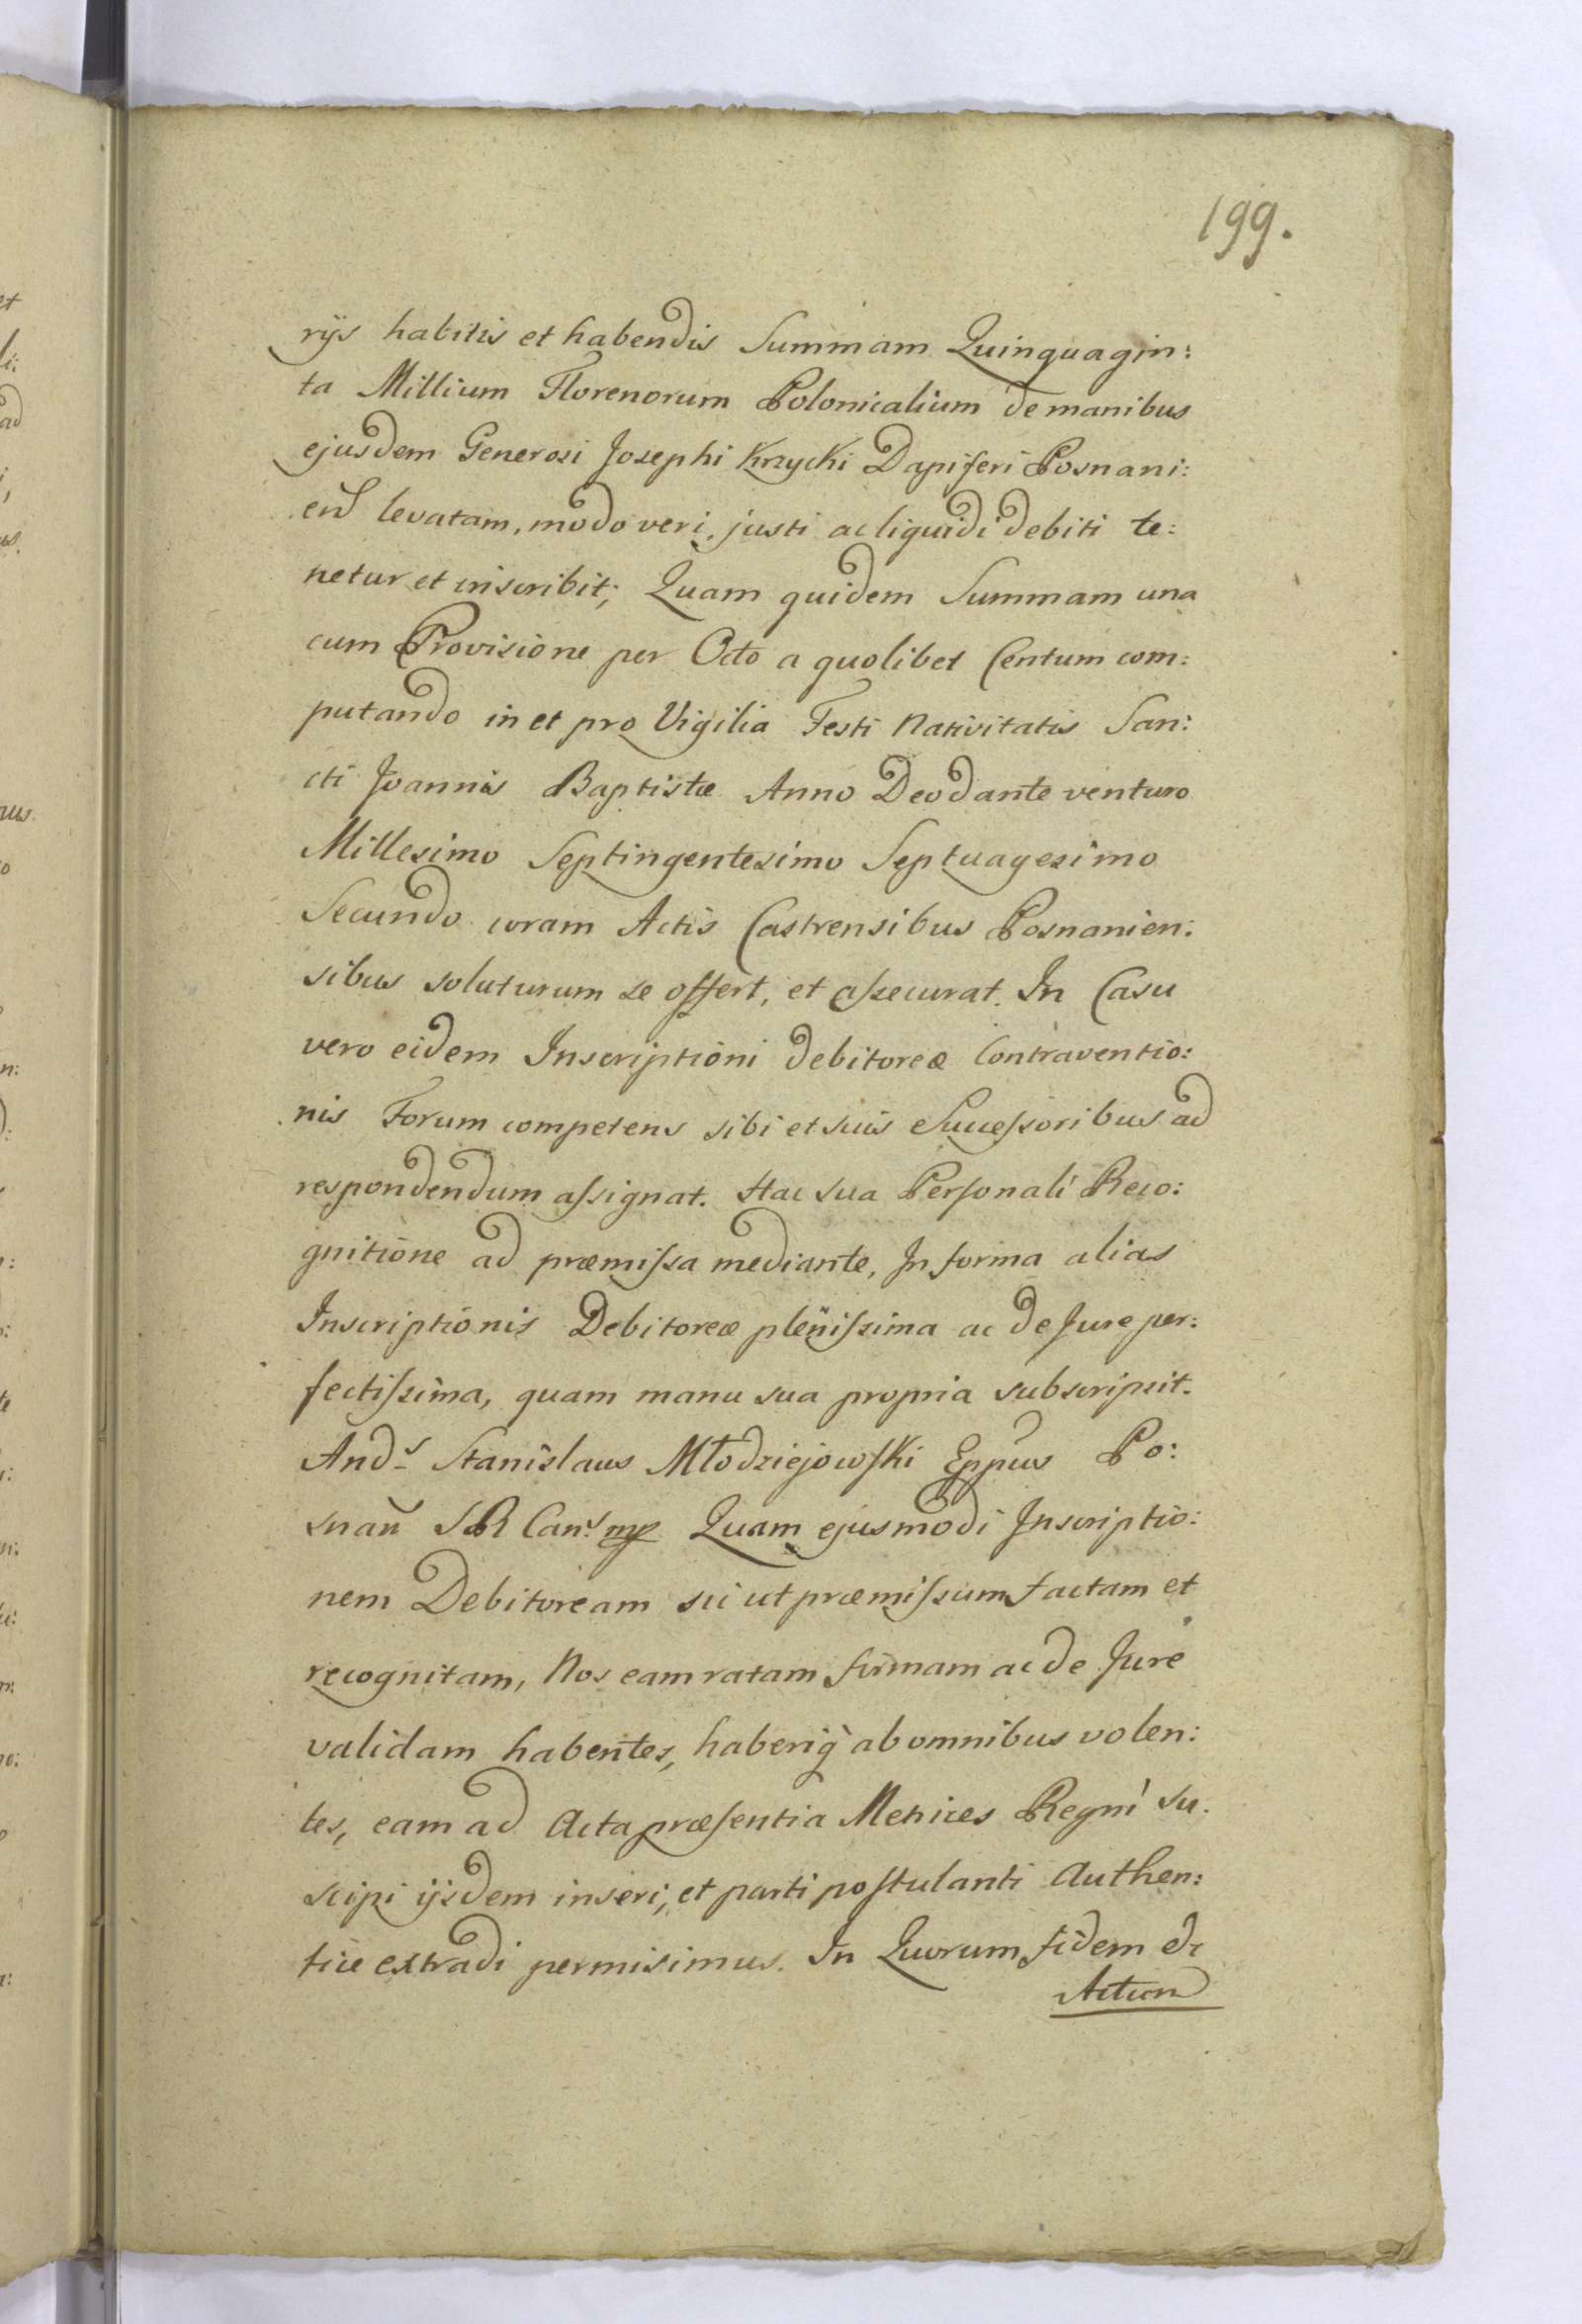 199.
rijs habitis et habendis Summam Quinquagin:
ta Millium Florenorum Polonicalium de manibus
ejusdem Generosi Josephi Krzycki Dapiferi Posnani:
en̄ levatam, modo veri, justi ac liquidi debiti te:
netur et inscribit; Quam quidem Summam una
cum Provisione per Octo a quolibet Centum com:
putando in et pro Vigilia Festi Nativitatis San:
cti Joannis Baptistæ Anno Deo dante venturo
Millesimo Septingentesimo Septuagesimo
Secundo coram Actis Castrensibus Posnanien:
sibus soluturum se offert, et aſsecurat. In Casu
vero eidem Inscriptioni debitoreæ Contraventio:
nis Forum competens sibi et suis Succeſsoribus ad
respondendum aſsignat. Hac sua Perſonali Reco:
gnitione ad præmiſsa mediante, In forma alias
Inscriptionis Debitoreæ pleniſsima ac de Jure per:
fectiſsima, quam manu sua propria subscripsit.
Andˢ Stanislaus Młodziejowſki Eppus Po:
snan̄ S R Canˢ mp Quam ejusmodi Inscriptio:
nem Debitoream sic ut præmiſsum factam et
recognitam, Nos eam ratam firmam ac de Jure
validam habentes, haberiq̀ ab omnibus volen:
tes, eam ad Acta præſentia Metrices Regni su:
scipi ijsdem inseri, et parti poſtulanti Authen:
tice extradi permisimus. In Quorum fidem &
Actum